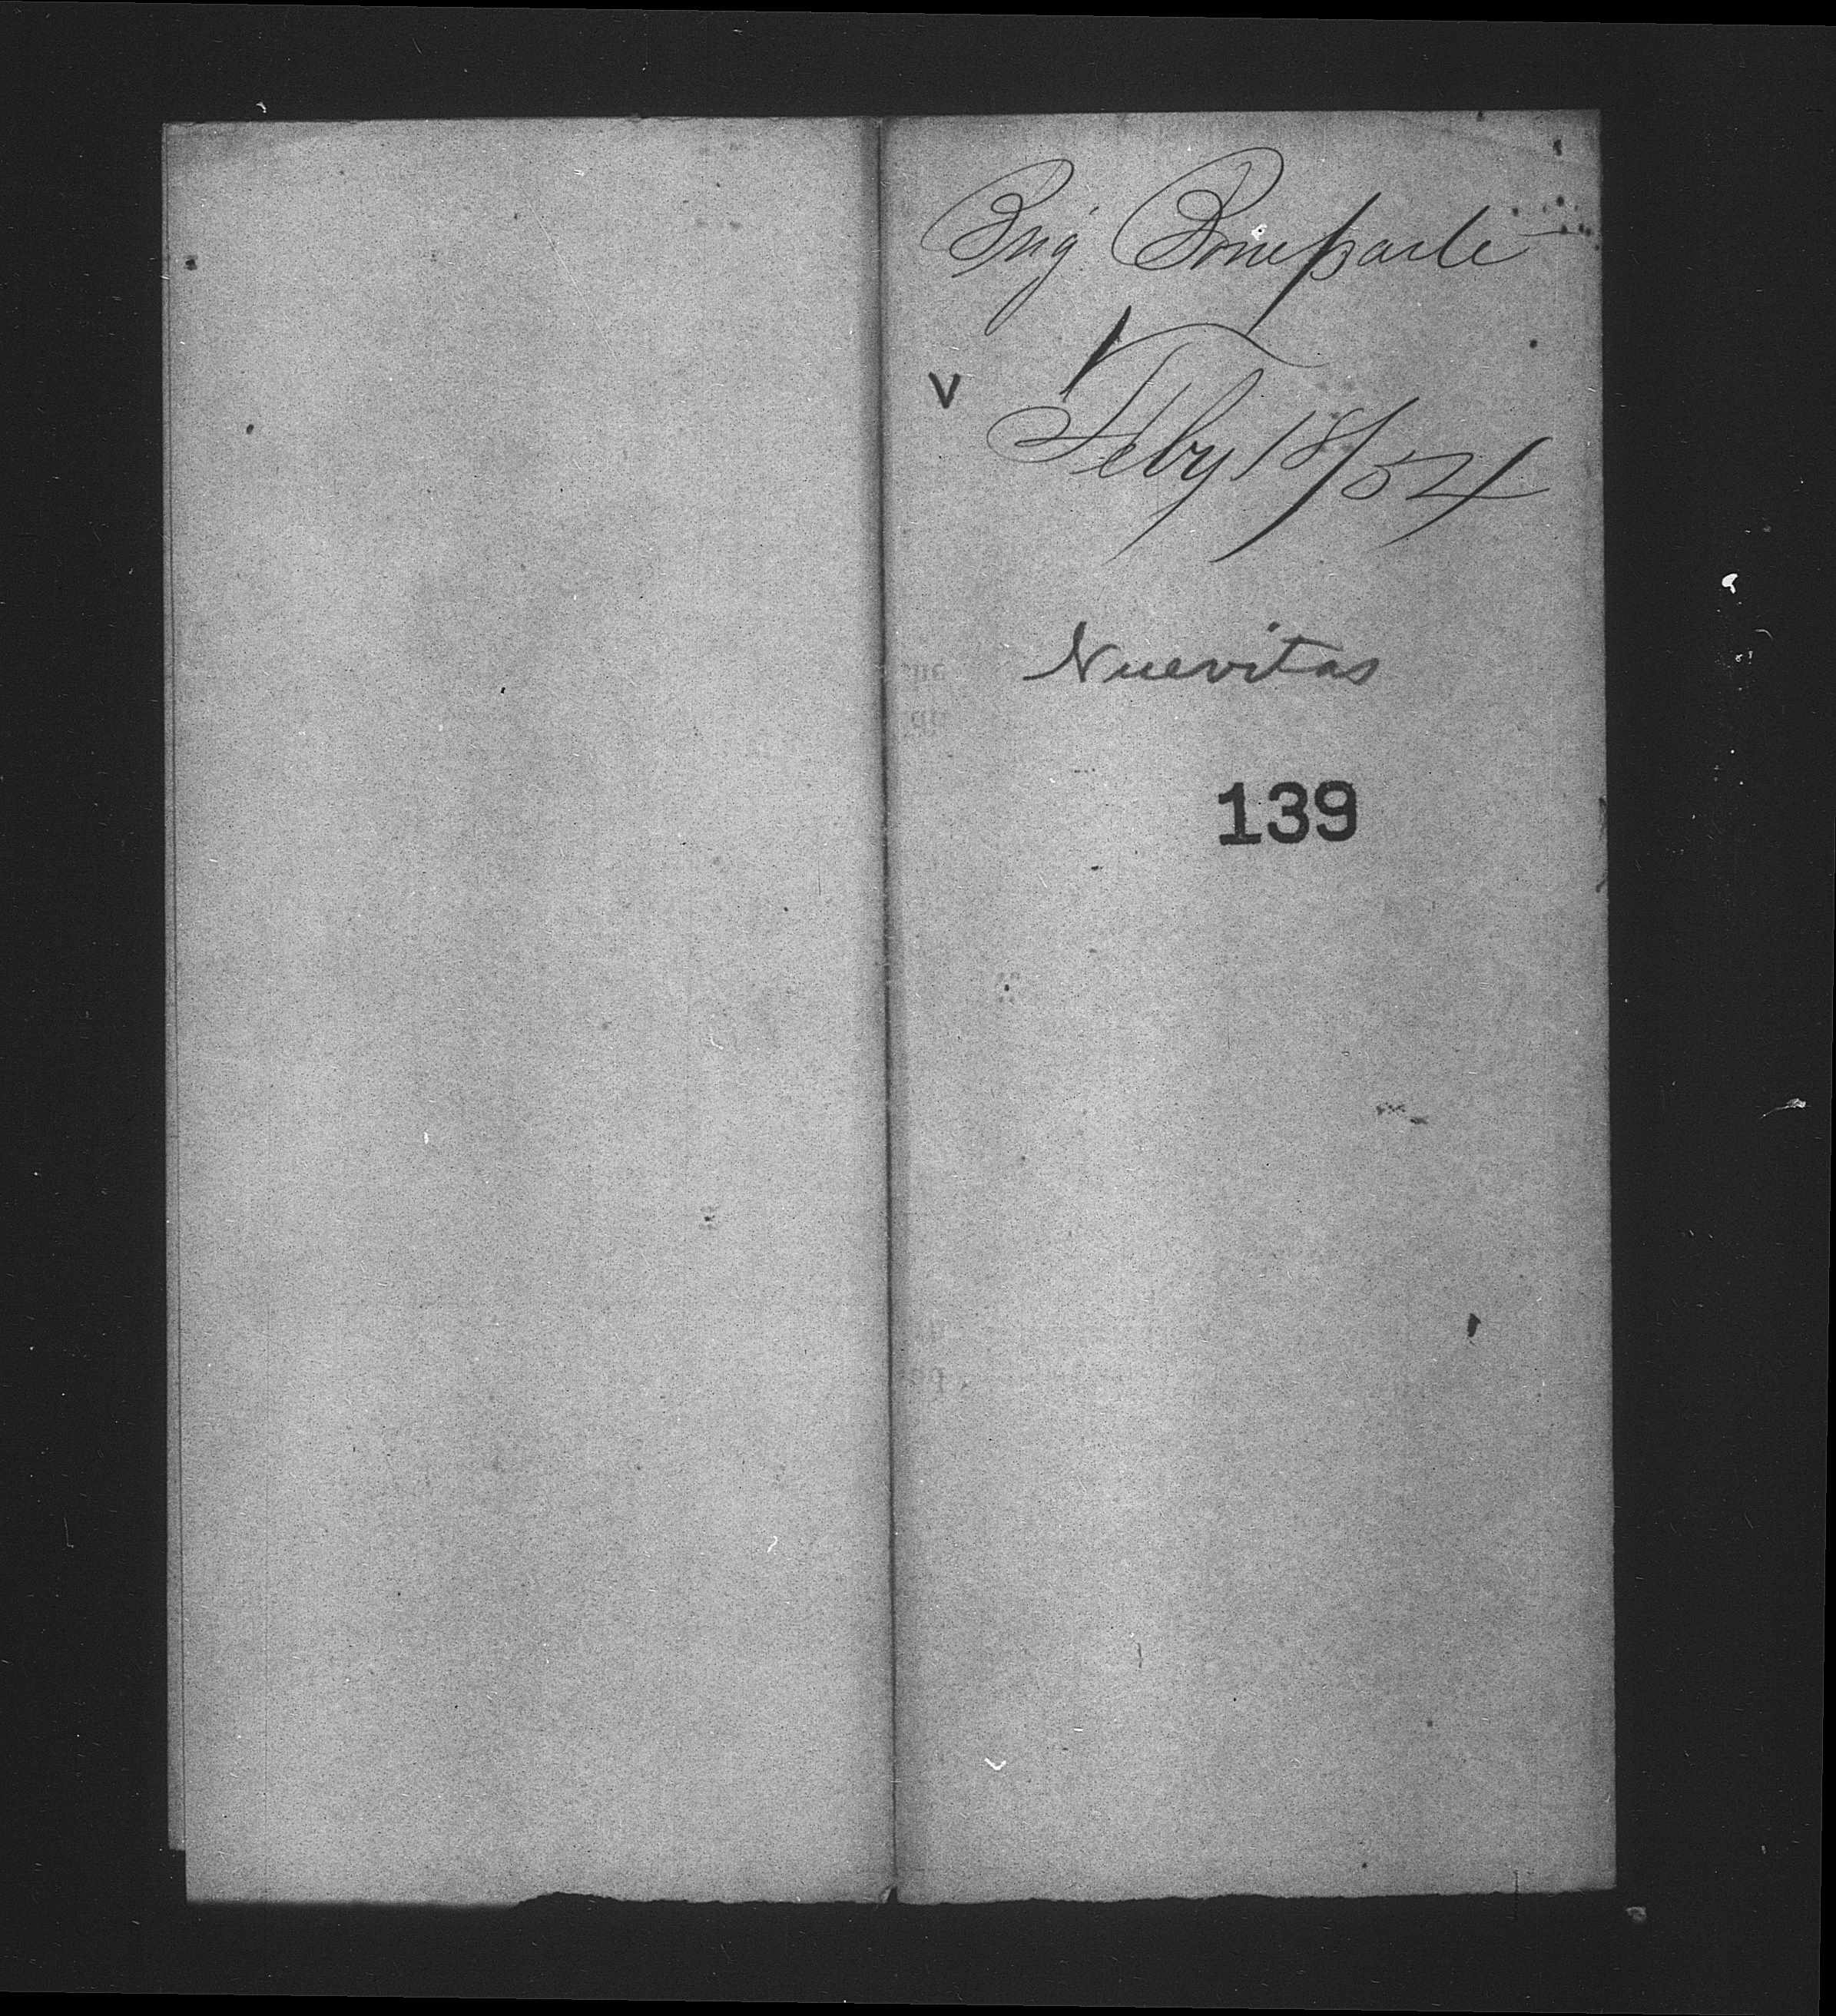 Brig Bonaparte
V
Feby 18/54
Nuevitas
139